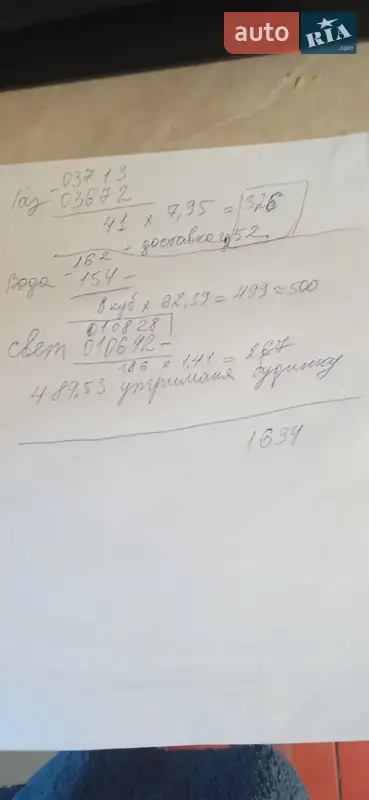 auto RIA .com
03713
Газ - 03672
41 x 7,95 = 326
доставка 52
162
Вода - 154 -
8 куб x 62,39 = 499 ≈ 500
010828
Свет 010642 -
186 x 1,44 = 267
489,53 утриманя будинку
1634